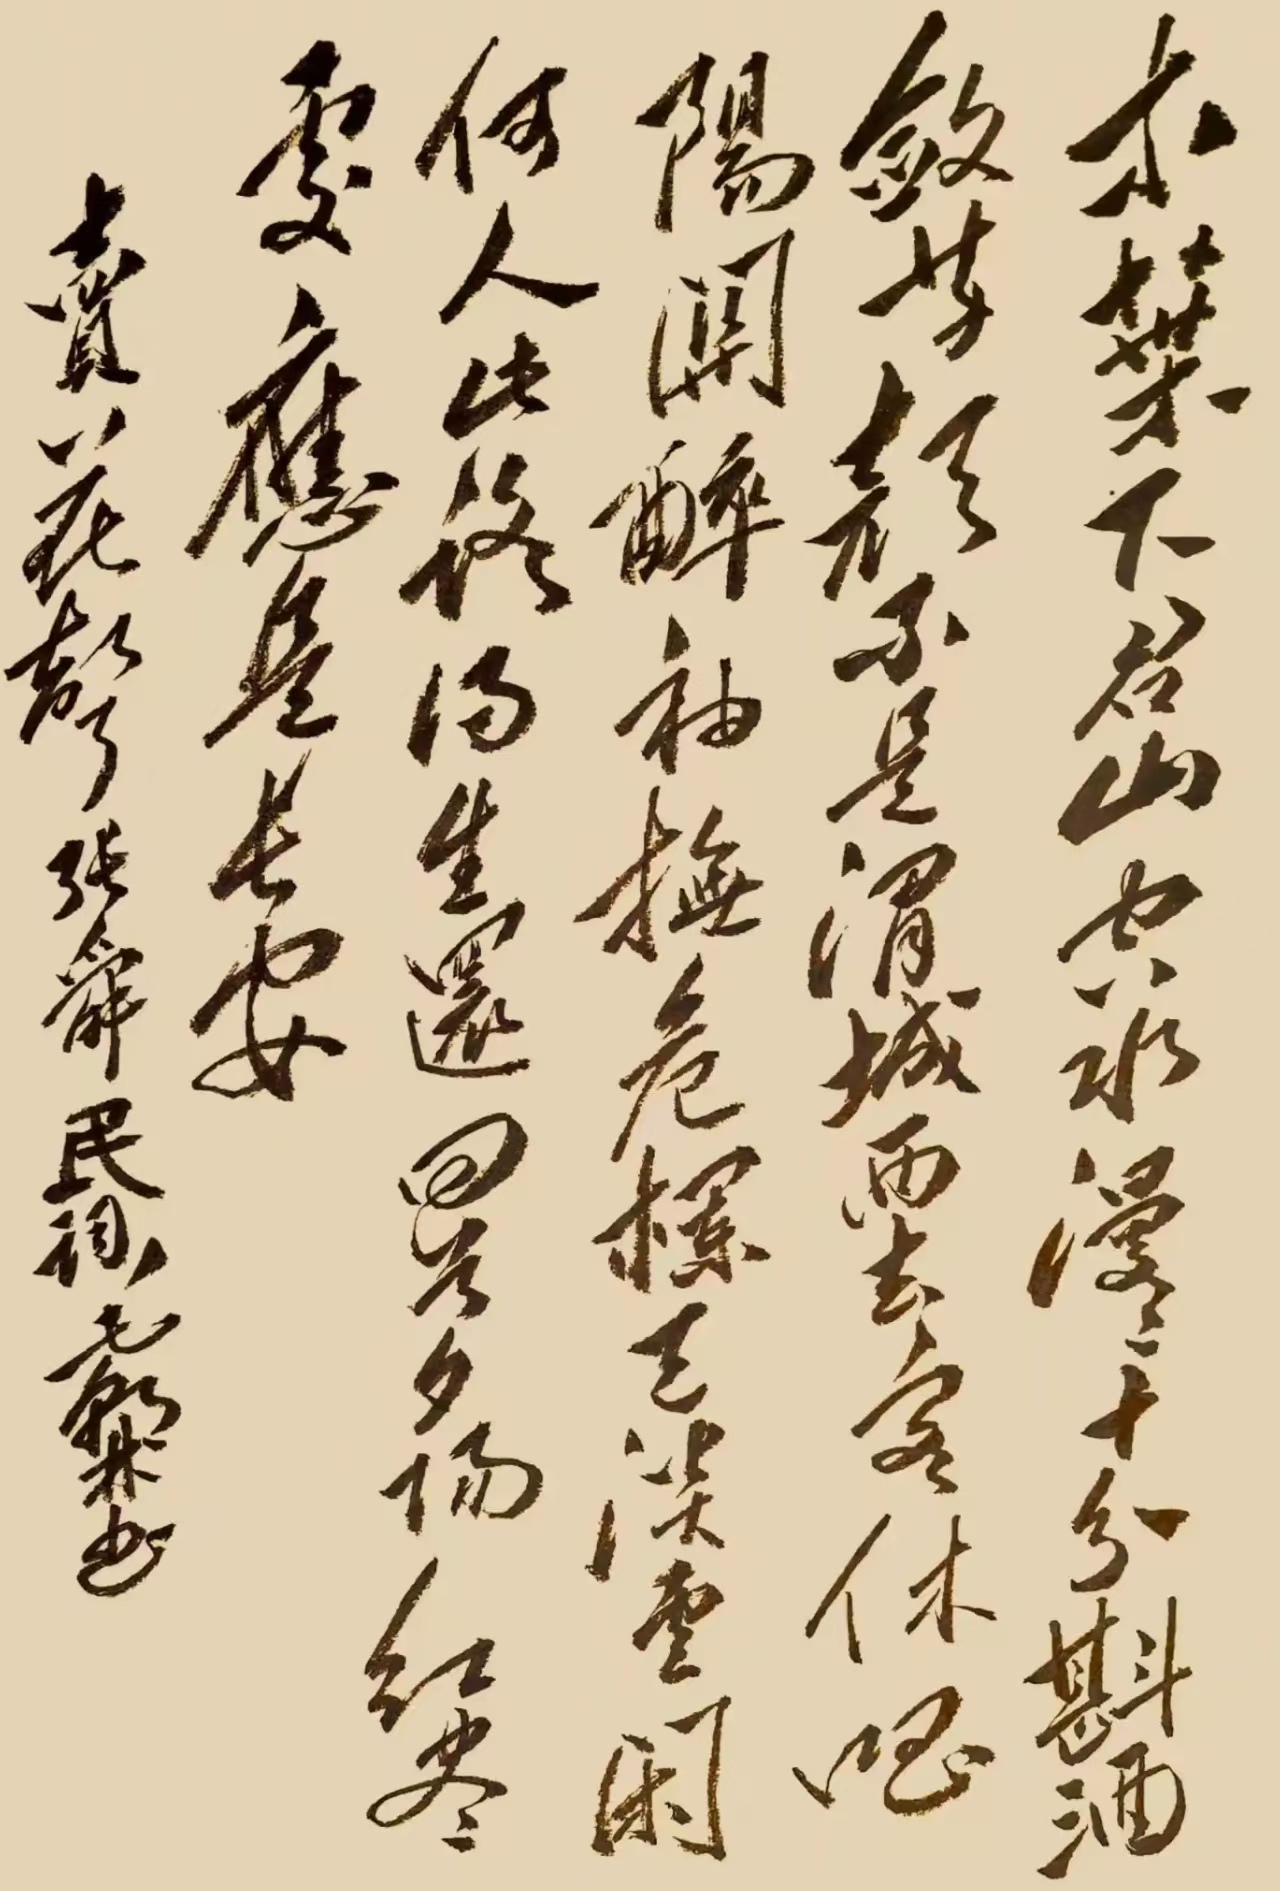 木葉下君山空水漫々十分斟酒
斂芳顏不是渭城西去客休唱
陽關醉袖撫危欄天淡雲閑
何人此路得生還回首夕陽紅盡
處應是長安
賣花聲張舜民詞 書